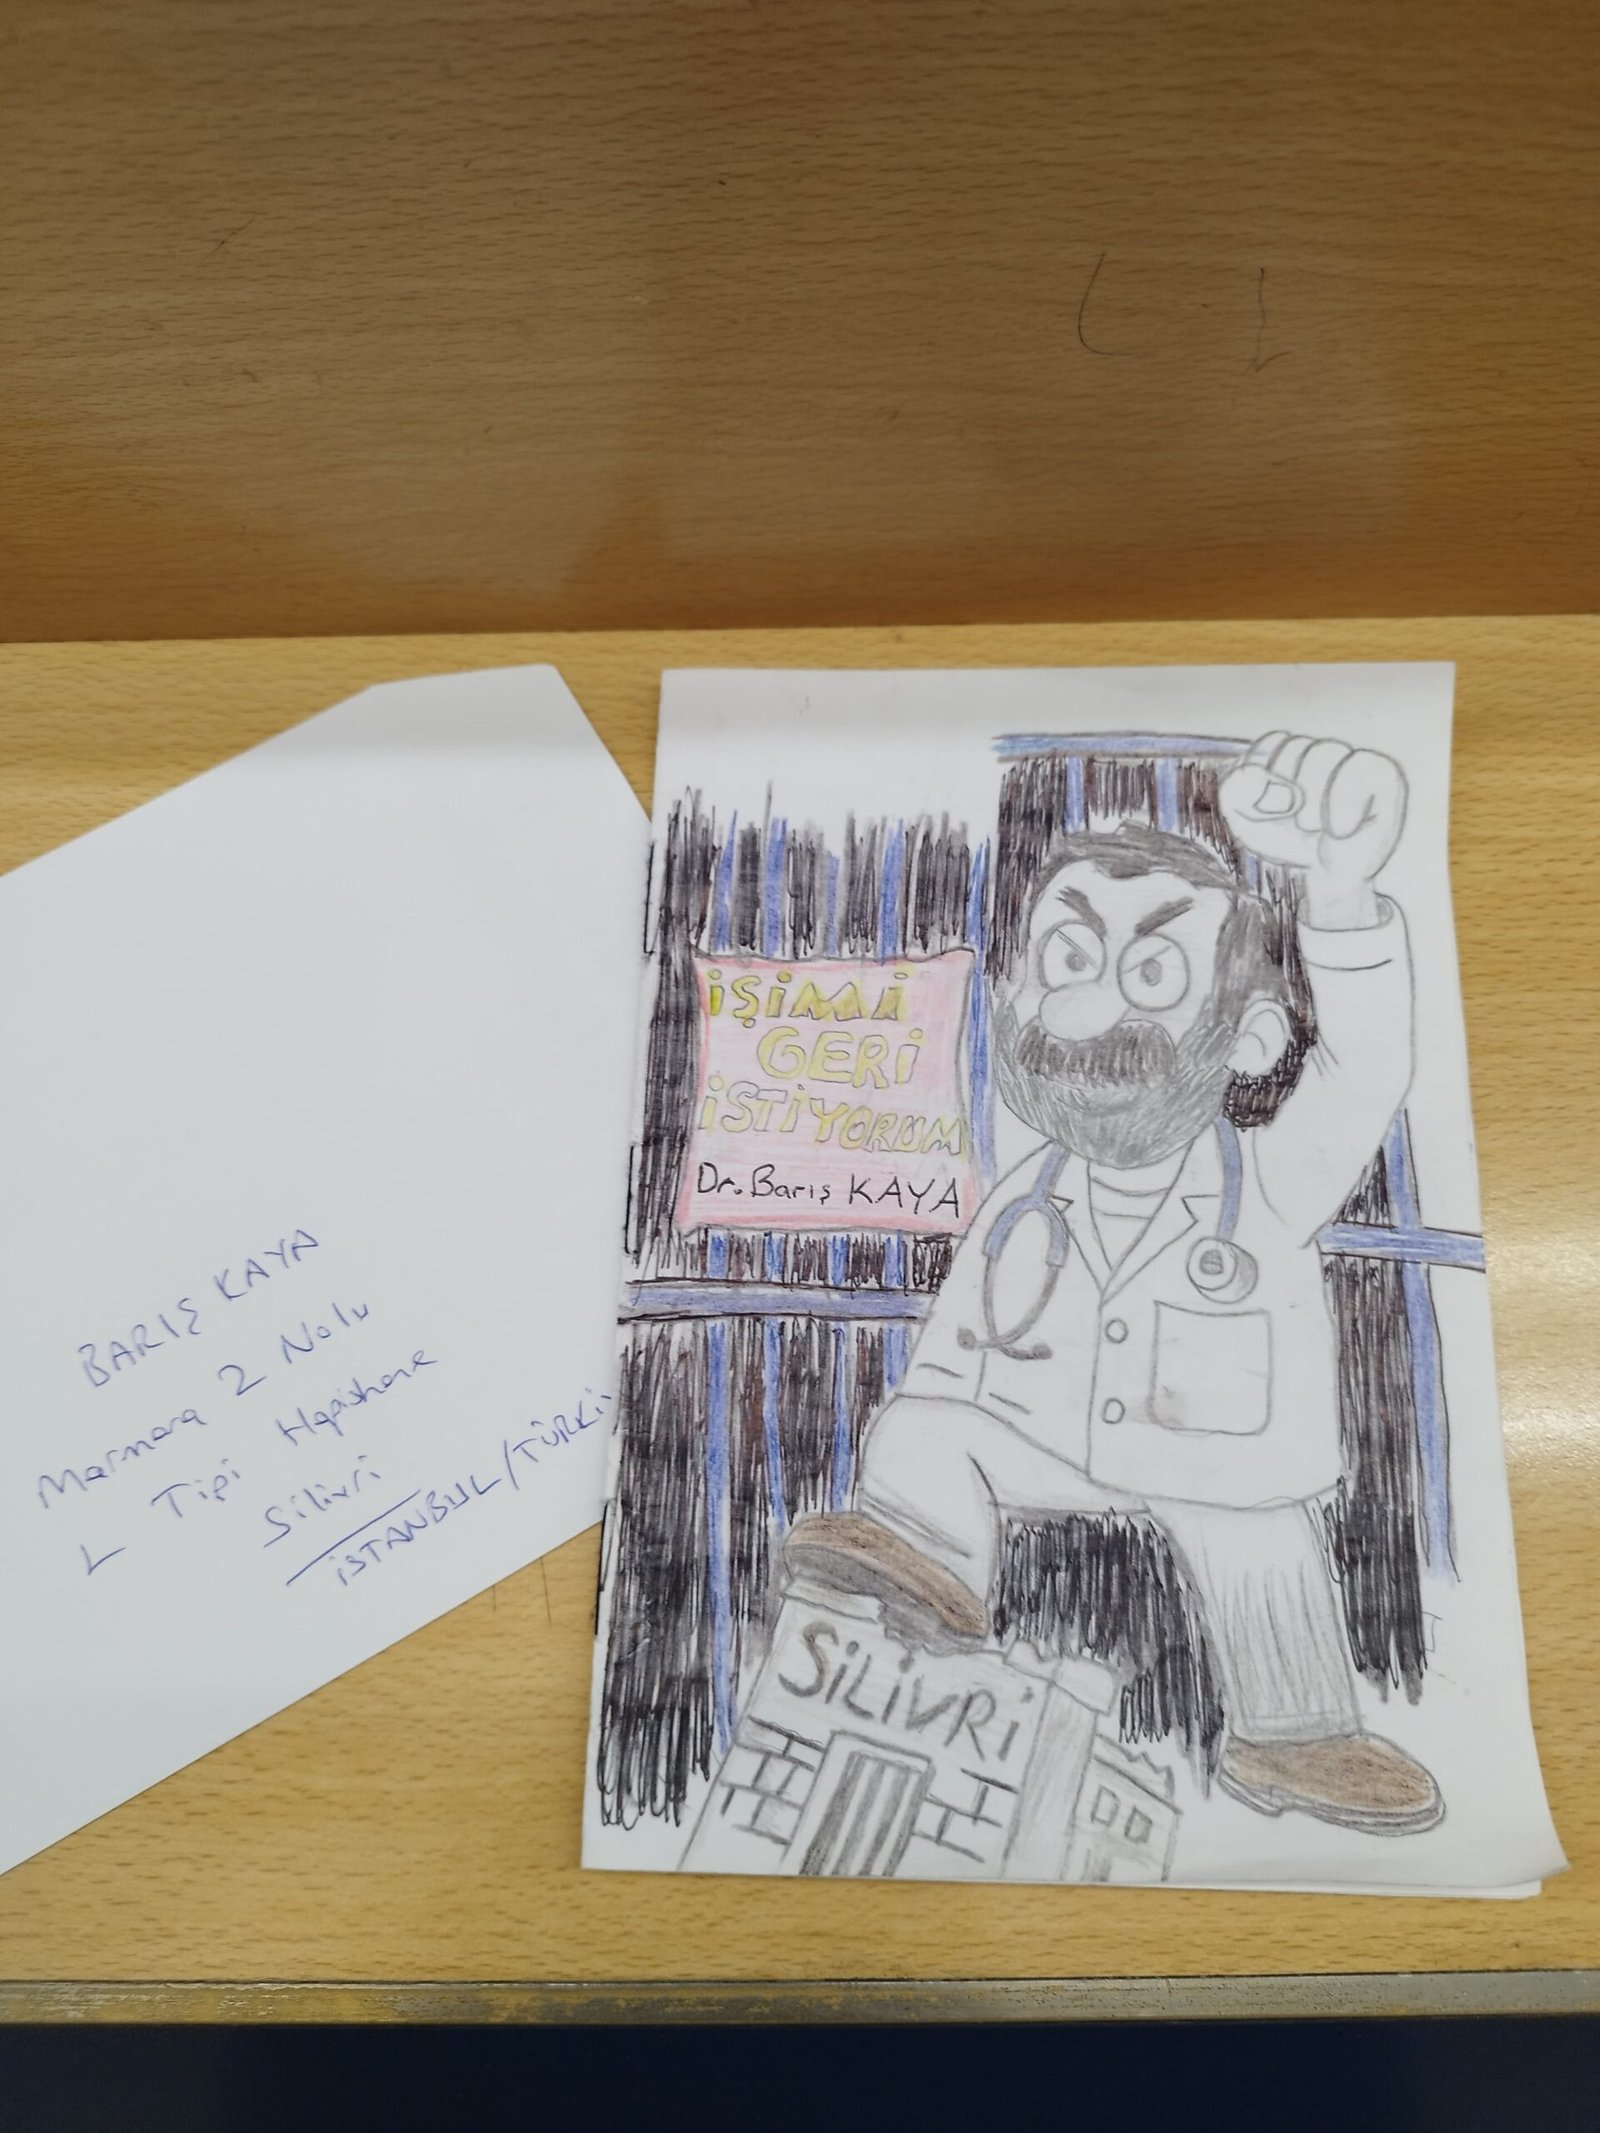 BARIŞ KAYA
Marmara 2 Nolu
L Tipi Hapishane
Silivri
İSTANBUL/TÜRKİ
İŞİMİ
GERİ
İSTİYORUM
Dr. Barış KAYA
SİLİVRİ